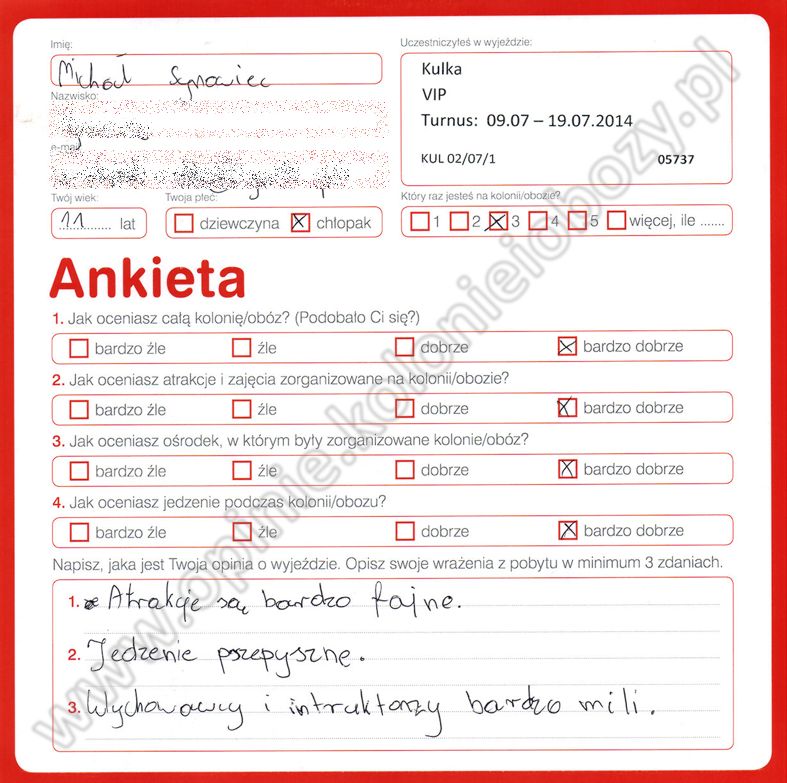 Imię:
Uczestniczyłeś w wyjeździe:
Michał
Kulka
VIP
Turnus: 09.07 – 19.07.2014
KUL 02/07/1 05737
Nazwisko:
e-mail
Twój wiek:
Twoja płeć:
Który raz jesteś na kolonii/obozie?
11 lat
dziewczyna chłopak
1 2 3 4 5 więcej, ile .......
Ankieta
1. Jak oceniasz całą kolonię/obóz? (Podobało Ci się?)
bardzo źle źle dobrze bardzo dobrze
2. Jak oceniasz atrakcje i zajęcia zorganizowane na kolonii/obozie?
bardzo źle źle dobrze bardzo dobrze
3. Jak oceniasz ośrodek, w którym były zorganizowane kolonie/obóz?
bardzo źle źle dobrze bardzo dobrze
4. Jak oceniasz jedzenie podczas kolonii/obozu?
bardzo źle źle dobrze bardzo dobrze
Napisz, jaka jest Twoja opinia o wyjeździe. Opisz swoje wrażenia z pobytu w minimum 3 zdaniach.
1. Atrakcje są bardzo fajne.
2. Jedzenie przepyszne.
3. Wychowawcy i intruktorzy bardzo mili.
www.opinie.kolonieiobozy.pl